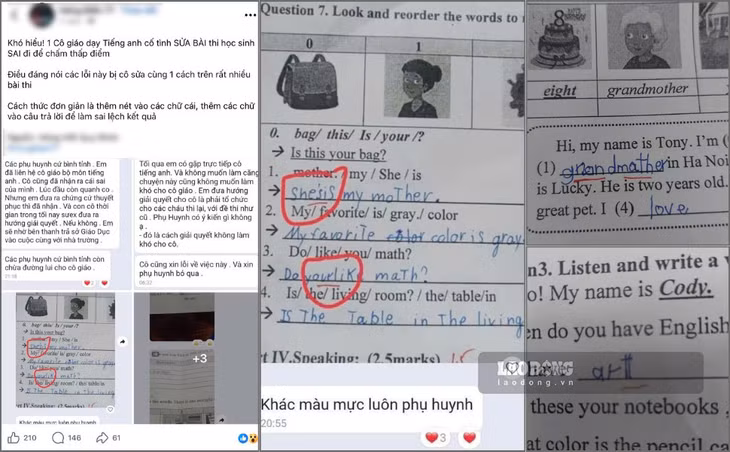 Khó hiểu! 1 Cô giáo dạy Tiếng anh cố tình SỬA BÀI thi học sinh
SAI đi để chấm thấp điểm
Điều đáng nói các lỗi này bị cô sửa cùng 1 cách trên rất nhiều
bài thi
Cách thức đơn giản là thêm nét vào các chữ cái, thêm các chữ
vào câu trả lời để làm sai lệch kết quả
Các phụ huynh cứ bình tĩnh . Em
đã liên hệ cô giáo bộ môn tiếng
anh . Cô cũng đã nhận ra cái sai
của mình . Lúc đầu còn quanh co .
Nhưng em đưa ra chứng cứ thuyết
phục thì đã nhận . Và con cô thời
gian trong tối nay suex đưa ra
hướng giải quyết . Nếu không . Em
sẽ nhờ bên thanh tra sở Giáo Dục
vào cuộc cùng với nhà trường .
Các phụ huynh cứ bình tĩnh còn
chừa đường lui cho cô giáo .
Tối qua em có gặp trực tiếp cô
tiếng anh. Và không muốn làm căng
chuyện này cũng không muốn làm
khó cho cô giáo . Em đưa hướng
giải quyết cho cô là phải tổ chức
cho các cháu thi lại, với đề thi như
cũ . Phụ Huynh có ý kiến gì không
ạ .
- đó là cách giải quyết không làm
khó cho cô .
Cô cũng xin lỗi về việc này . Và xin
phụ huynh bỏ qua .
+3
210
146
61
Question 7. Look and reorder the words to
0
1
0. bag/ this/ Is / your /?
→ Is this your bag?
1. mother. / my / She / is
→ She is my mother.
2. My/ favorite/ is/ gray./ color
→ My favorite color color is gray.
3. Do/ like/ you/ math?
→ Do your like math?
4. Is/ the/ living/ room? / the/ table/in
→ Is The Table in The living
t IV.Speaking: (2.5marks) 1.5
Khác màu mực luôn phụ huynh
20:55
3
eight
grandmother
Hi, my name is Tony. I'm (
(1) grandmather in Ha Noi
is Lucky. He is two years old.
great pet. I (4) love
n3. Listen and write a
o! My name is Cody.
en do you have English
artt
these your notebooks ,
at color is the pencil ca
LAO ĐỘNG
laodong.vn